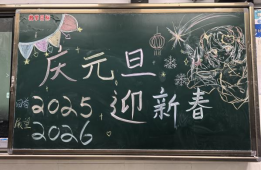 庆元旦
迎新春
2025
2026